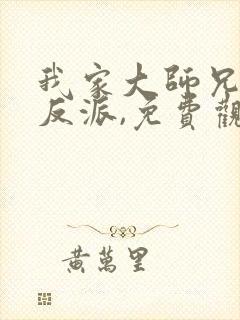 我家大師兄
反派,免費觀
黃萬里